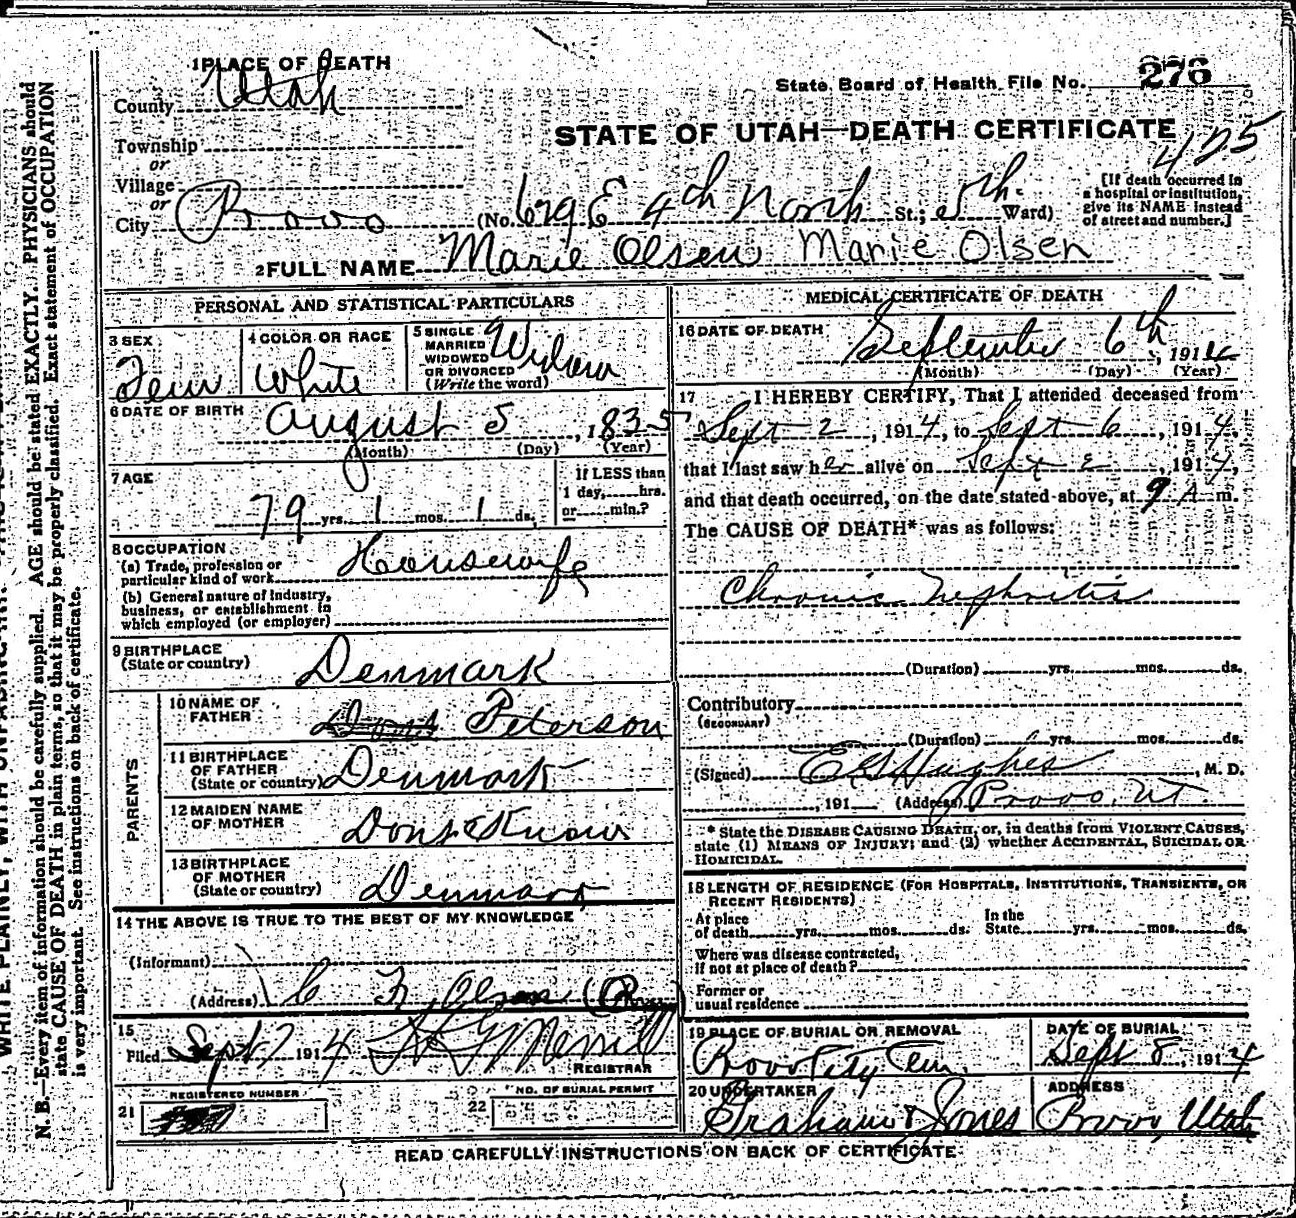 1 PLACE OF DEATH
State Board of Health File No. 276
County Utah
STATE OF UTAH—DEATH CERTIFICATE
425
Township
or
Village
or
City Provo (No. 679 E 4th North St.; 5th Ward)
[If death occurred in a hospital or institution, give its NAME instead of street and number.]
2 FULL NAME Marie Olsen Marie Olsen
PERSONAL AND STATISTICAL PARTICULARS
3 SEX Fem
4 COLOR OR RACE White
5 SINGLE MARRIED WIDOWED OR DIVORCED (Write the word) Widow
6 DATE OF BIRTH August 5, 1835
(Month) (Day) (Year)
7 AGE 79 yrs. 1 mos. 1 ds.
If LESS than 1 day, hrs. or min.?
8 OCCUPATION Housewife
(a) Trade, profession or particular kind of work
(b) General nature of industry, business, or establishment in which employed (or employer)
9 BIRTHPLACE (State or country) Denmark
PARENTS
10 NAME OF FATHER Peterson
11 BIRTHPLACE OF FATHER (State or country) Denmark
12 MAIDEN NAME OF MOTHER Dont Know
13 BIRTHPLACE OF MOTHER (State or country) Denmark
14 THE ABOVE IS TRUE TO THE BEST OF MY KNOWLEDGE
(Informant)
(Address) Olsen
15
Filed Sept 7 1914 Merrill
REGISTRAR
REGISTERED NUMBER
21
NO. OF BURIAL PERMIT
22
MEDICAL CERTIFICATE OF DEATH
16 DATE OF DEATH September 6th, 1914
(Month) (Day) (Year)
17 I HEREBY CERTIFY, That I attended deceased from
Sept 2, 1914, to Sept 6, 1914,
that I last saw her alive on Sept 2, 1914,
and that death occurred, on the date stated above, at 9 A m.
The CAUSE OF DEATH* was as follows:
Chronic Nephritis
(Duration) yrs. mos. ds.
Contributory
(SECONDARY)
(Duration) yrs. mos. ds.
(Signed) E G Hughes, M. D.
, 191 (Address) Provo, Ut
* State the DISEASE CAUSING DEATH, or, in deaths from VIOLENT CAUSES,
state (1) MEANS OF INJURY; and (2) whether ACCIDENTAL, SUICIDAL OR
HOMICIDAL.
18 LENGTH OF RESIDENCE (FOR HOSPITALS, INSTITUTIONS, TRANSIENTS, OR
RECENT RESIDENTS)
At place of death yrs. mos. ds. In the State yrs. mos. ds.
Where was disease contracted,
if not at place of death?
Former or
usual residence
19 PLACE OF BURIAL OR REMOVAL Provo City Cem.
DATE OF BURIAL Sept 8, 1914
20 UNDERTAKER Graham & Jones
ADDRESS Provo, Utah
READ CAREFULLY INSTRUCTIONS ON BACK OF CERTIFICATE
N. B.—Every item of information should be carefully supplied. AGE should be stated EXACTLY. PHYSICIANS should
state CAUSE OF DEATH in plain terms, so that it may be properly classified. Exact statement of OCCUPATION
is very important. See instructions on back of certificate.